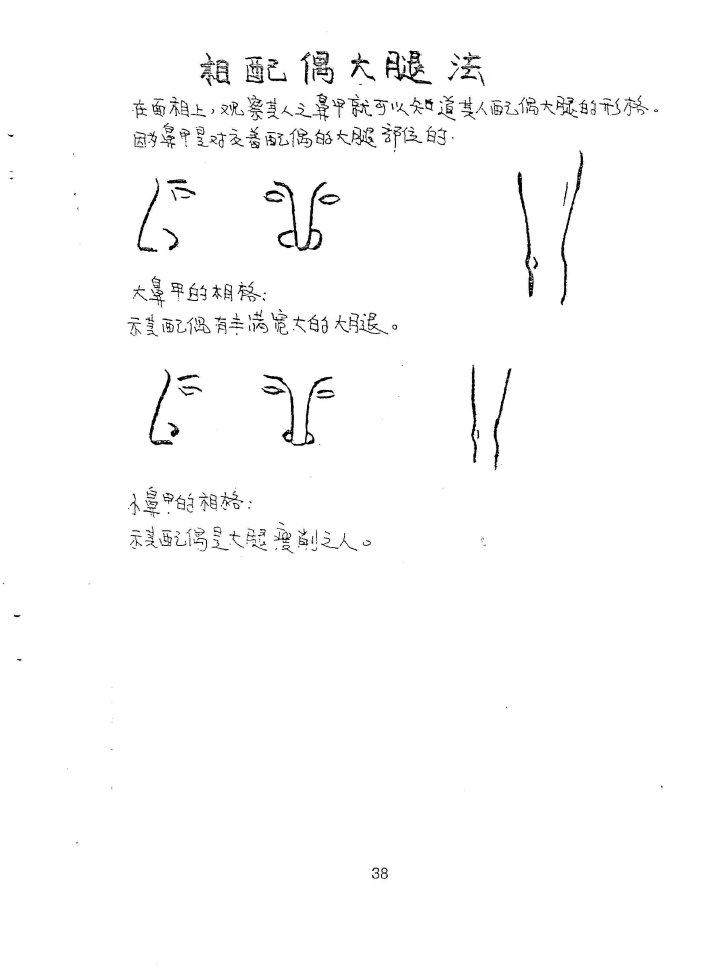 相配偶大腿法
在面相上，观察其人之鼻甲就可以知道其人配偶大腿的形格。
因为鼻甲是对应着配偶的大腿部位的.
大鼻甲的相格：
示其配偶有丰满宽大的大腿。
小鼻甲的相格：
示其配偶是大腿瘦削之人。
38